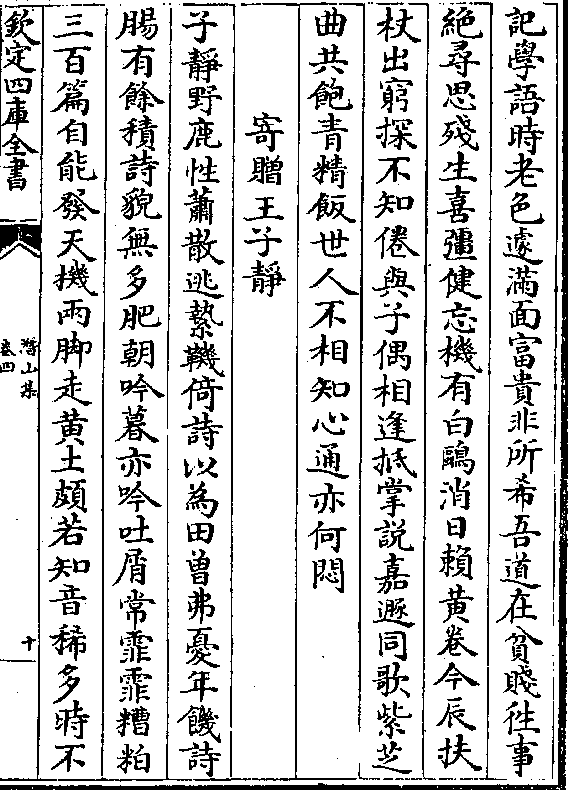 記學語時老色遽滿面富貴非所希吾道在貧賤徃事
絶尋思殘生喜彊健忘機有白鷗消日賴黄卷今辰扶
杖出窮探不知倦與子偶相逢抵掌説嘉遯同歌紫芝
曲共飽青精飯世人不相知心通亦何悶
寄贈王子靜
子靜野鹿性蕭散逃縶鞿倚詩以為田曽弗憂年饑詩
腸有餘積詩貌無多肥朝吟暮亦吟吐屑常霏霏糟粕
三百篇自能發天機兩脚走黄土頗若知音稀多時不
欽定四庫全書
潛山集
卷四
十